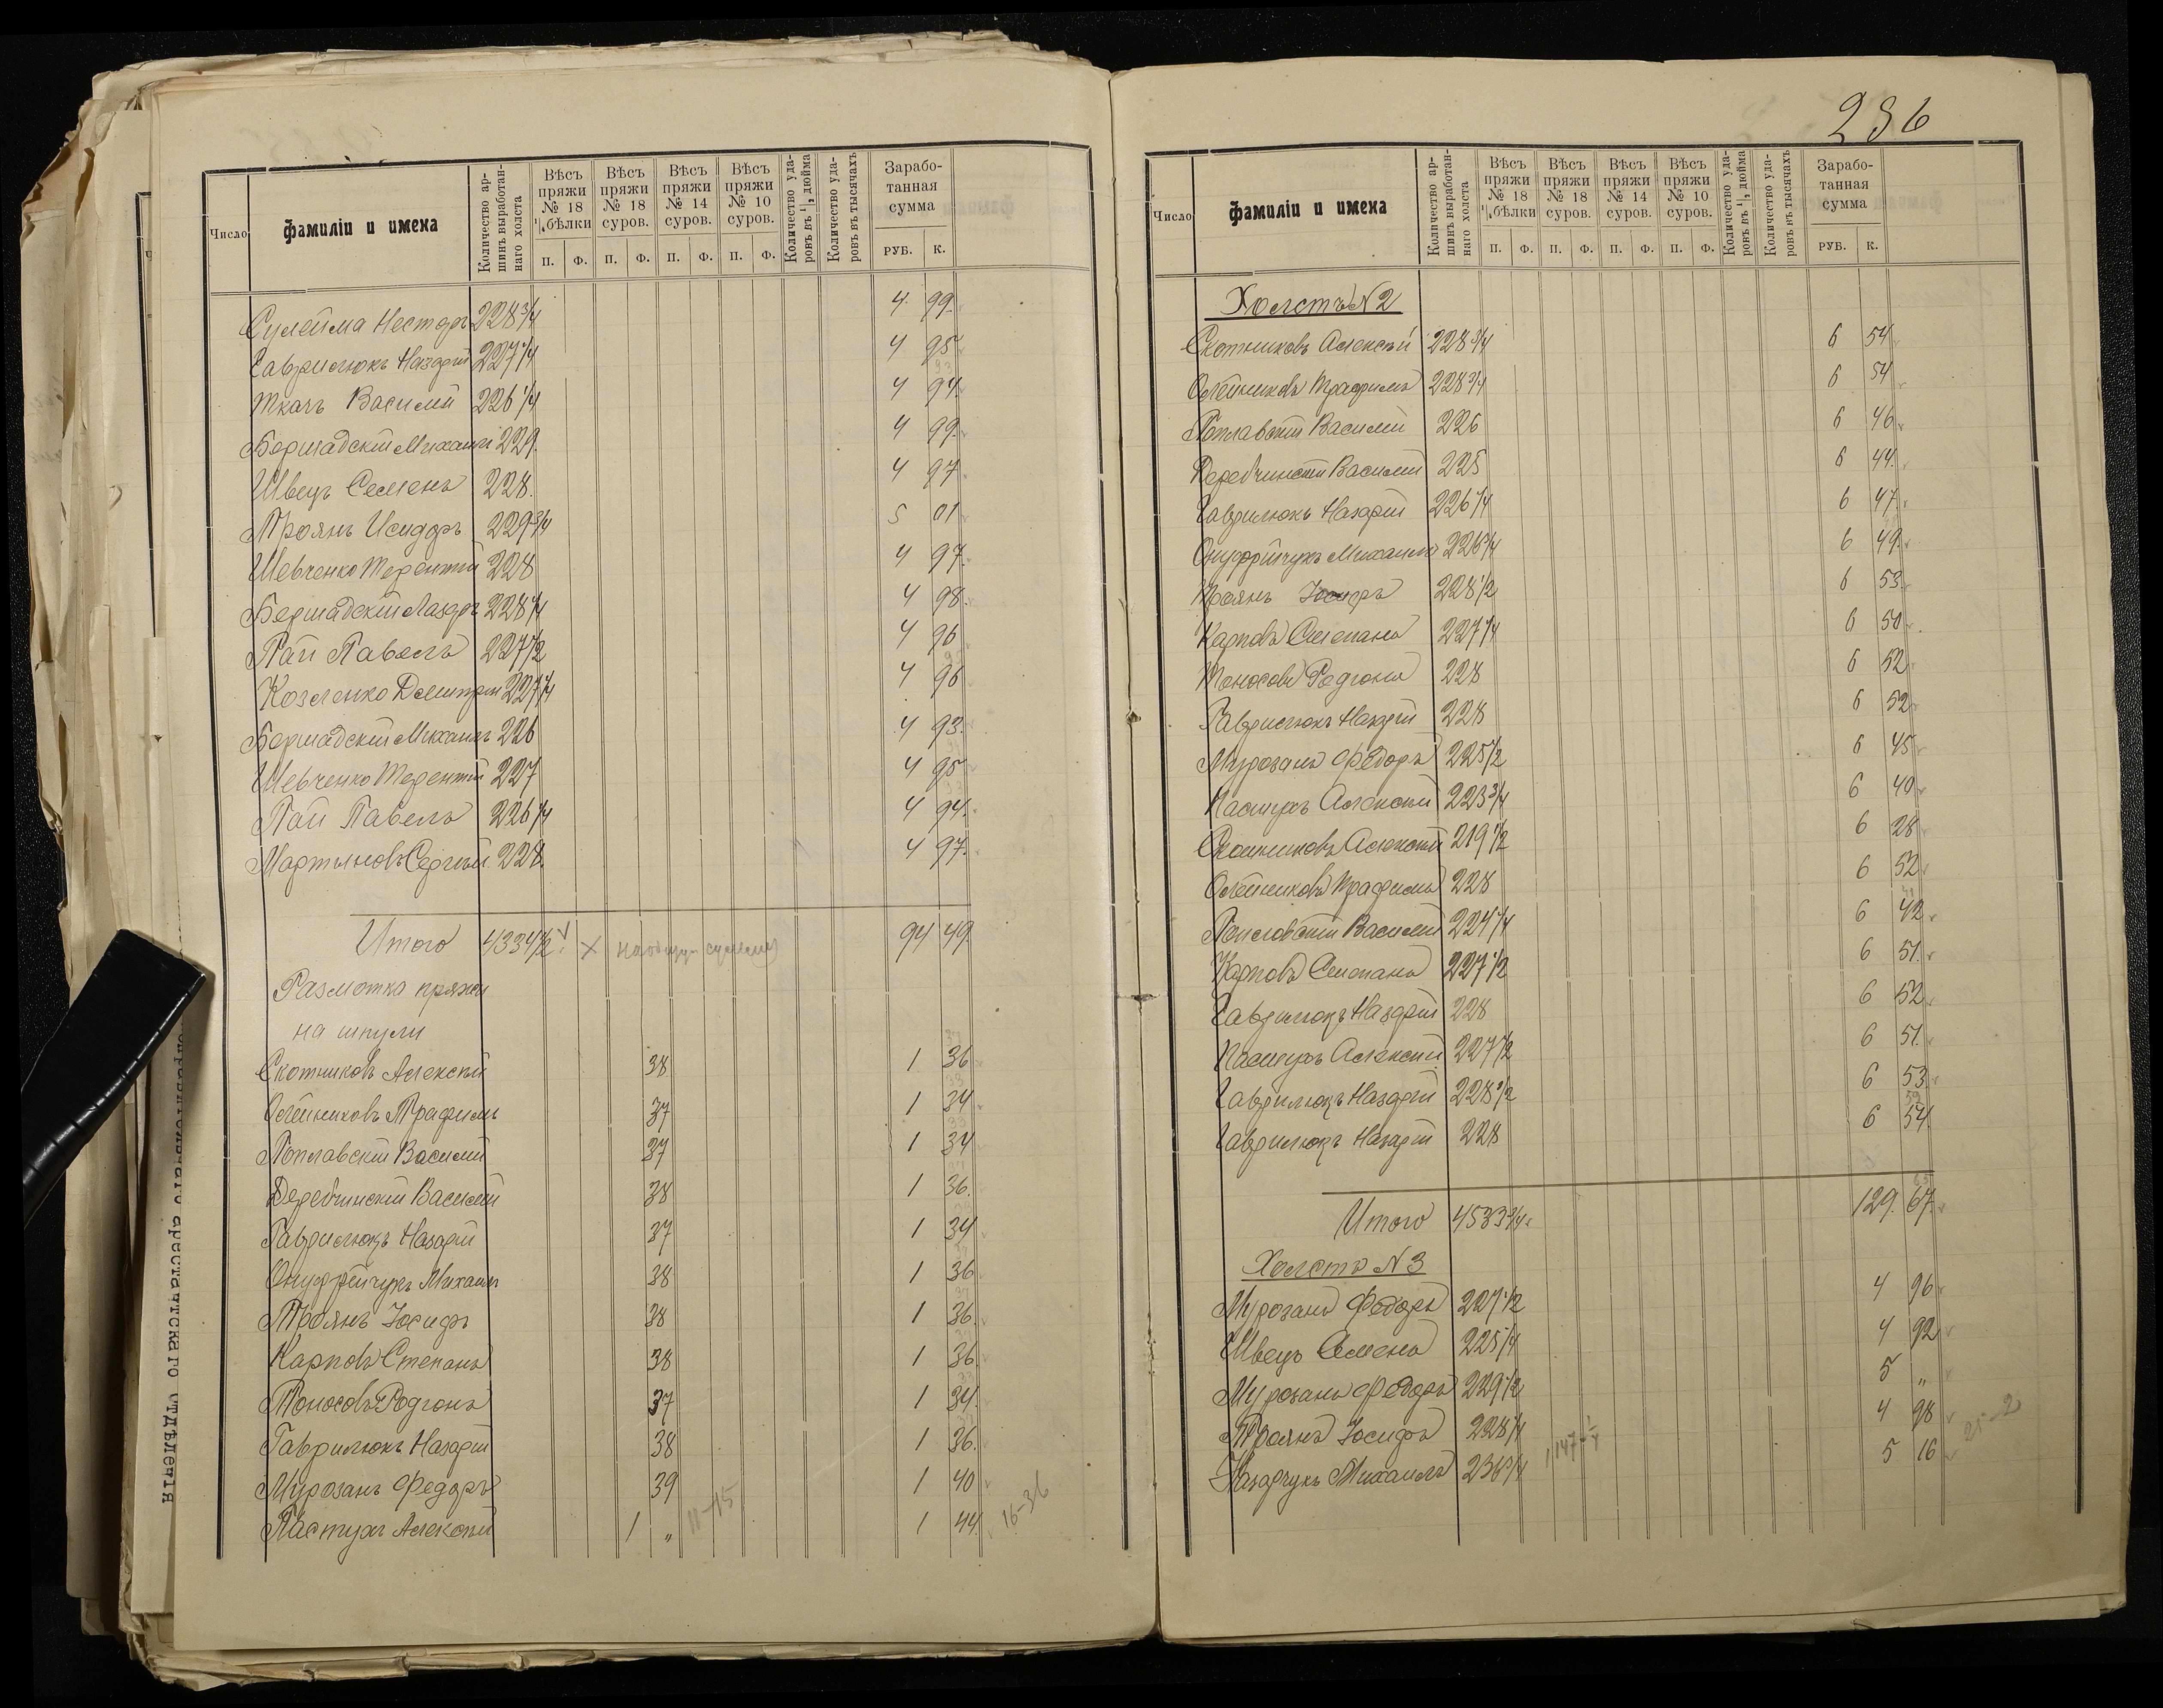 Число
фамиліи и имена
Количество ар-
шинъ выработан-
наго холста
Вѣсъ пряжи № 18 ½ бѣлки
Вѣсъ пряжи № 18 суров.
Вѣсъ пряжи № 14 суров.
Вѣсъ пряжи № 10 суров.
Количество уда-
ровъ въ ¼ дюйма
Количество уда-
ровъ въ тысячахъ
Зарабо-
танная
сумма
П. Ф. П. Ф. П. Ф. П. Ф. РУБ. К.
Сулейма Несторъ 228 3/4 4 99
Гаврилюкъ Назарій 227 1/4 4 95
Ткачъ Василій 226 1/4 4 94
Бершадскій Михаилъ 229 4 99
Швецъ Семенъ 228 4 97
Троянъ Исидоръ 229 3/4 5 01
Шевченко Терентій 228 4 97
Бершадскій Лазарь 228 1/4 4 98
Пай Павелъ 227 1/2 4 96
Козленко Дмитрій 227 1/4 4 96
Бершадскій Михаилъ 226 4 93
Шевченко Терентій 227 4 95
Пай Павелъ 226 1/4 4 94
Мартыновъ Сергѣй 228 4 97
Итого 4334 1/2 94 49
Размотка пряжи
на шпули
Скотниковъ Алексѣй 38 1 36
Олейниковъ Трафимъ 37 1 34
Поплавскій Василій 37 1 34
Деребчинскій Василій 38 1 36
Гаврилюкъ Назарій 37 1 34
Онуфрійчукъ Михаилъ 38 1 36
Троянъ Іосифъ 38 1 36
Карповъ Степанъ 38 1 36
Тоносовъ Родіонъ 37 1 34
Гаврилюкъ Назарій 38 1 36
Мурозанъ Федоръ 39 1 40
Пастухъ Алексѣй 1 „ 11-15 1 44 16-36
236
Число
фамиліи и имена
Количество ар-
шинъ выработан-
наго холста
Вѣсъ пряжи № 18 ½ бѣлки
Вѣсъ пряжи № 18 суров.
Вѣсъ пряжи № 14 суров.
Вѣсъ пряжи № 10 суров.
Количество уда-
ровъ въ ¼ дюйма
Количество уда-
ровъ въ тысячахъ
Зарабо-
танная
сумма
П. Ф. П. Ф. П. Ф. П. Ф. РУБ. К.
Холстъ N 2
Скотниковъ Алексѣй 228 3/4 6 54
Олейниковъ Трафимъ 228 3/4 6 54
Поплавскій Василій 226 6 46
Деребчинскій Василій 225 6 44
Гаврилюкъ Назарій 226 1/4 6 47
Онуфрійчукъ Михаилъ 226 3/4 6 49
Троянъ Іосифъ 228 1/2 6 53
Карповъ Степанъ 227 1/4 6 50
Тоносовъ Родіонъ 228 6 52
Гаврилюкъ Назарій 228 6 52
Мурозанъ Федоръ 225 1/2 6 45
Пастухъ Алексѣй 223 3/4 6 40
Скотниковъ Алексѣй 219 1/2 6 28
Олейниковъ Трафимъ 228 6 52
Поплавскій Василій 224 1/4 6 42
Карповъ Степанъ 227 1/2 6 51
Гаврилюкъ Назарій 228 6 52
Пастухъ Алексѣй 227 1/2 6 51
Гаврилюкъ Назарій 228 1/2 6 53
Гаврилюкъ Назарій 228 6 54
Итого 4533 3/4 129 67
Холстъ N 3
Мурозанъ Федоръ 227 1/2 4 96
Швецъ Семенъ 225 1/4 4 92
Мурозанъ Федоръ 229 1/2 5 „
Троянъ Іосифъ 228 1/4 4 98
Назарчукъ Михаилъ 236 3/4 1147 1/4 5 16 25-2
опредѣлительнаго арестантскаго отдѣленія